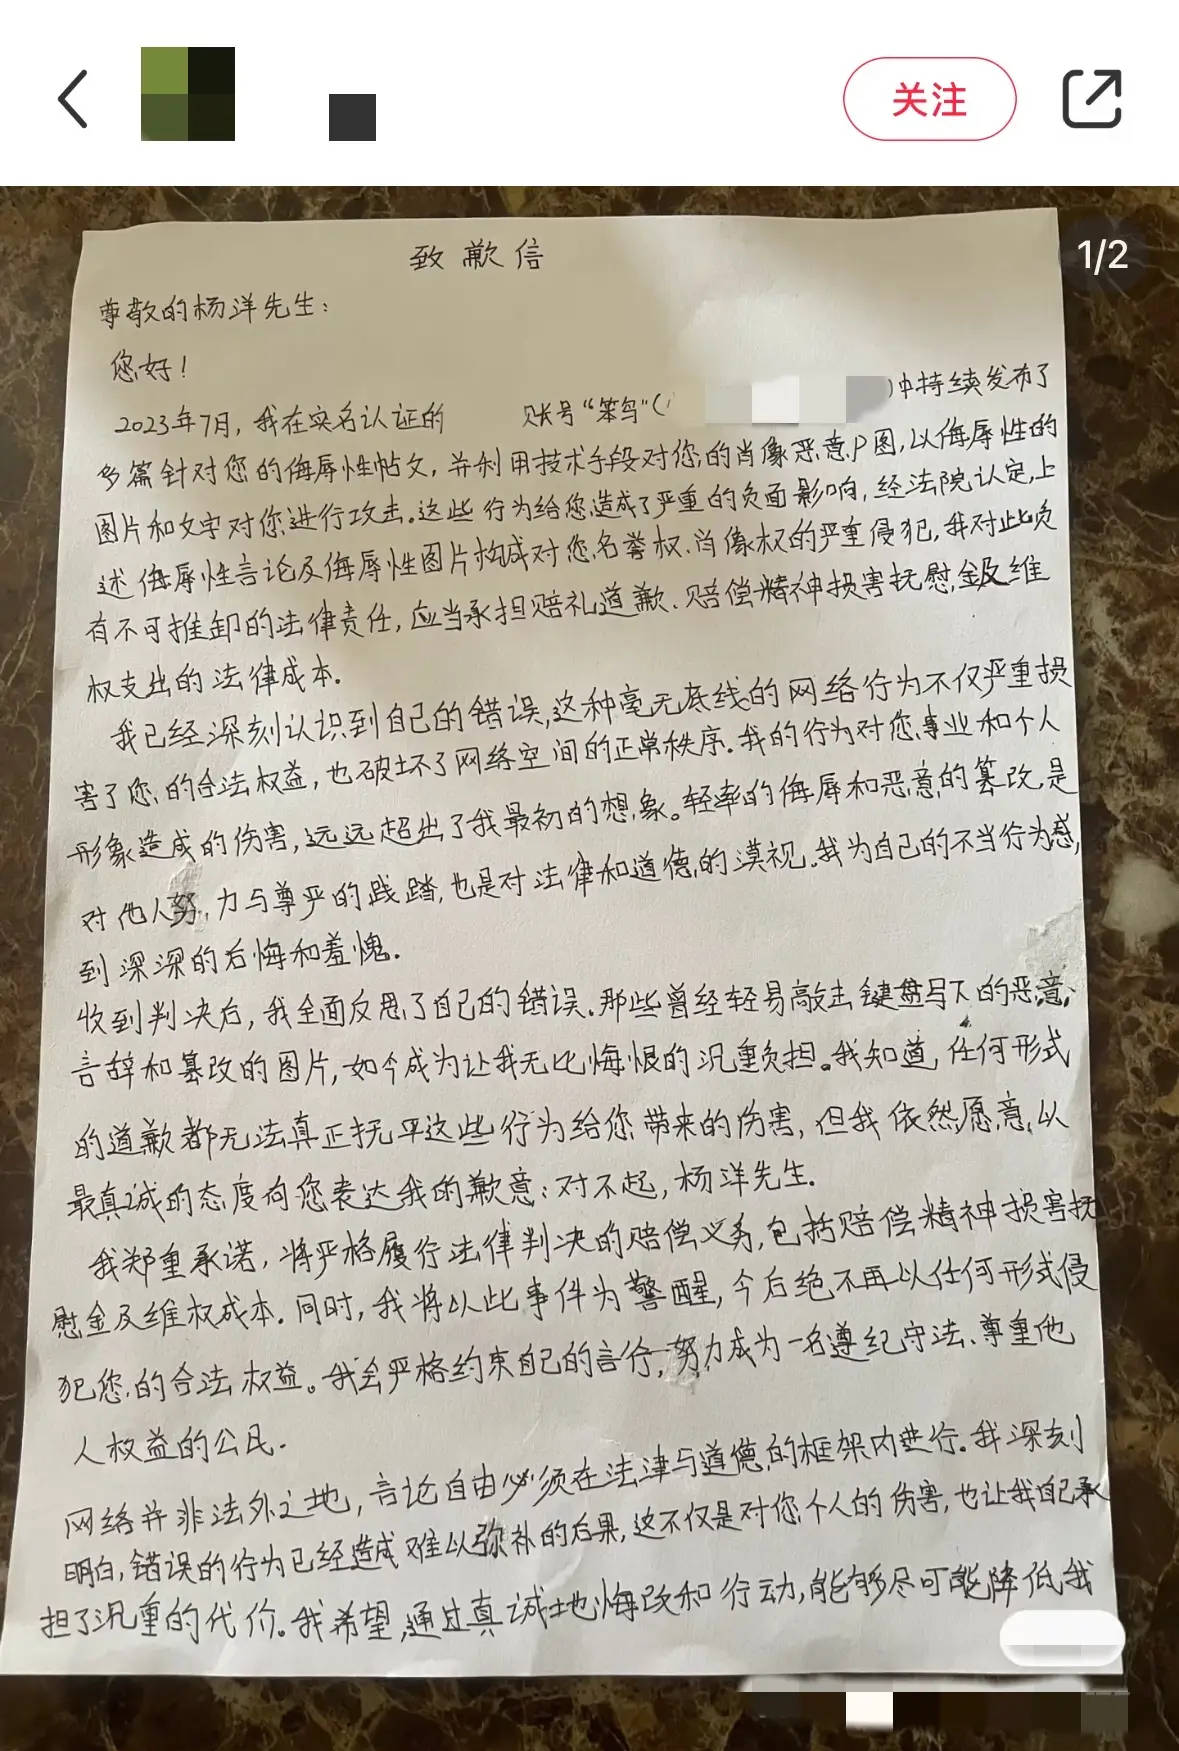 关注
1/2
致歉信
尊敬的杨洋先生：
您好！
2023年7月，我在实名认证的 账号“笨鸟”( )中持续发布了
多篇针对您的侮辱性帖文，并利用技术手段对您的肖像恶意P图，以侮辱性的
图片和文字对您进行攻击。这些行为给您造成了严重的负面影响，经法院认定，上
述侮辱性言论及侮辱性图片构成对您名誉权、肖像权的严重侵犯，我对此负
有不可推卸的法律责任，应当承担赔礼道歉、赔偿精神损害抚慰金及维
权支出的法律成本。
我已经深刻认识到自己的错误，这种毫无底线的网络行为不仅严重损
害了您的合法权益，也破坏了网络空间的正常秩序。我的行为对您事业和个人
形象造成的伤害，远远超出了我最初的想象。轻率的侮辱和恶意的篡改，是
对他人努力与尊严的践踏，也是对法律和道德的漠视。我为自己的不当行为感
到深深的后悔和羞愧。
收到判决后，我全面反思了自己的错误。那些曾经轻易敲击键盘写下的恶意
言辞和篡改的图片，如今成为让我无比悔恨的沉重负担。我知道，任何形式
的道歉都无法真正抚平这些行为给您带来的伤害，但我依然愿意以
最真诚的态度向您表达我的歉意：对不起，杨洋先生。
我郑重承诺，将严格履行法律判决的赔偿义务，包括赔偿精神损害抚
慰金及维权成本。同时，我将以此事件为警醒，今后绝不再以任何形式侵
犯您的合法权益。我会严格约束自己的言行，努力成为一名遵纪守法、尊重他
人权益的公民。
网络并非法外之地，言论自由必须在法律与道德的框架内进行。我深刻
明白，错误的行为已经造成难以弥补的后果，这不仅是对您个人的伤害，也让我自己承
担了沉重的代价。我希望，通过真诚地悔改和行动，能够尽可能降低我